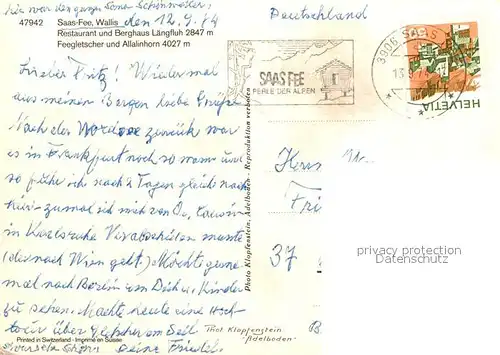 hier war der ganze Sonnenschein
47942 Saas-Fee, Wallis den 12.9.74
Restaurant und Berghaus Längfluh 2847 m
Feegletscher und Allalinhorn 4027 m
Deutschland
3906 SAAS
SAAS FEE
PERLE DER ALPEN
HELVETIA
Lieber Fritz! Wieder mal
aus meinen Bergen liebe Grüße
Nach der zurück war
es in Frankfurt noch so warm und
so fuhr ich nach 2 Tagen gleich nach
hier - zumal ich mich von
in Karlsruhe verabschieden mußte
(der nach Wien geht.) Möchte gerne
mal nach Berlin um Dich u. Kinder
zu sehen. Machte heute eine Hoch-
tour über Gletscher am Seil
schön deine
Herrn
Fri
37
Photo Klopfenstein, Adelboden - Reproduktion verboten
Printed in Switzerland - Imprimé en Suisse
Phot Klopfenstein
"Adelboden"
B
privacy protection
for AKs